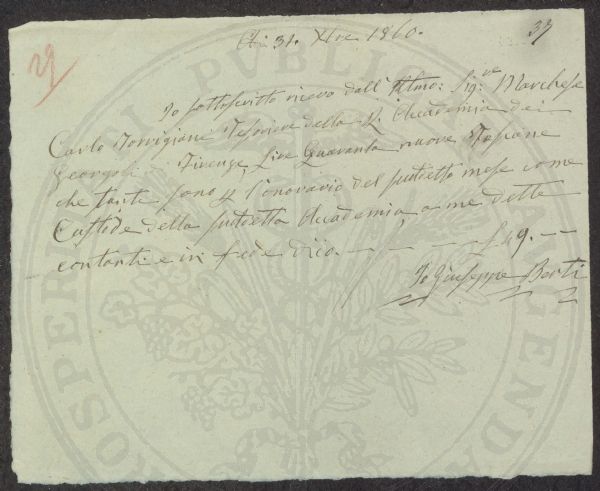 Adi 31. Xbre 1860.
37
29
Io sottoscritto ricevo dall' Illmo: Sig:re Marchese
Carlo Torrigiani Tesoriere della R. Accademia dei
Georgofili di Firenze Lire Quaranta nuove Toscane
che tante sono p l'onorario del suddetto mese come
Custode della suddetta Accademia, a me dette
contanti e in fede dico. — — — — £ 49. —
Io Giuseppe Berti
PROSPERITATI PUBLICAE AUGENDAE